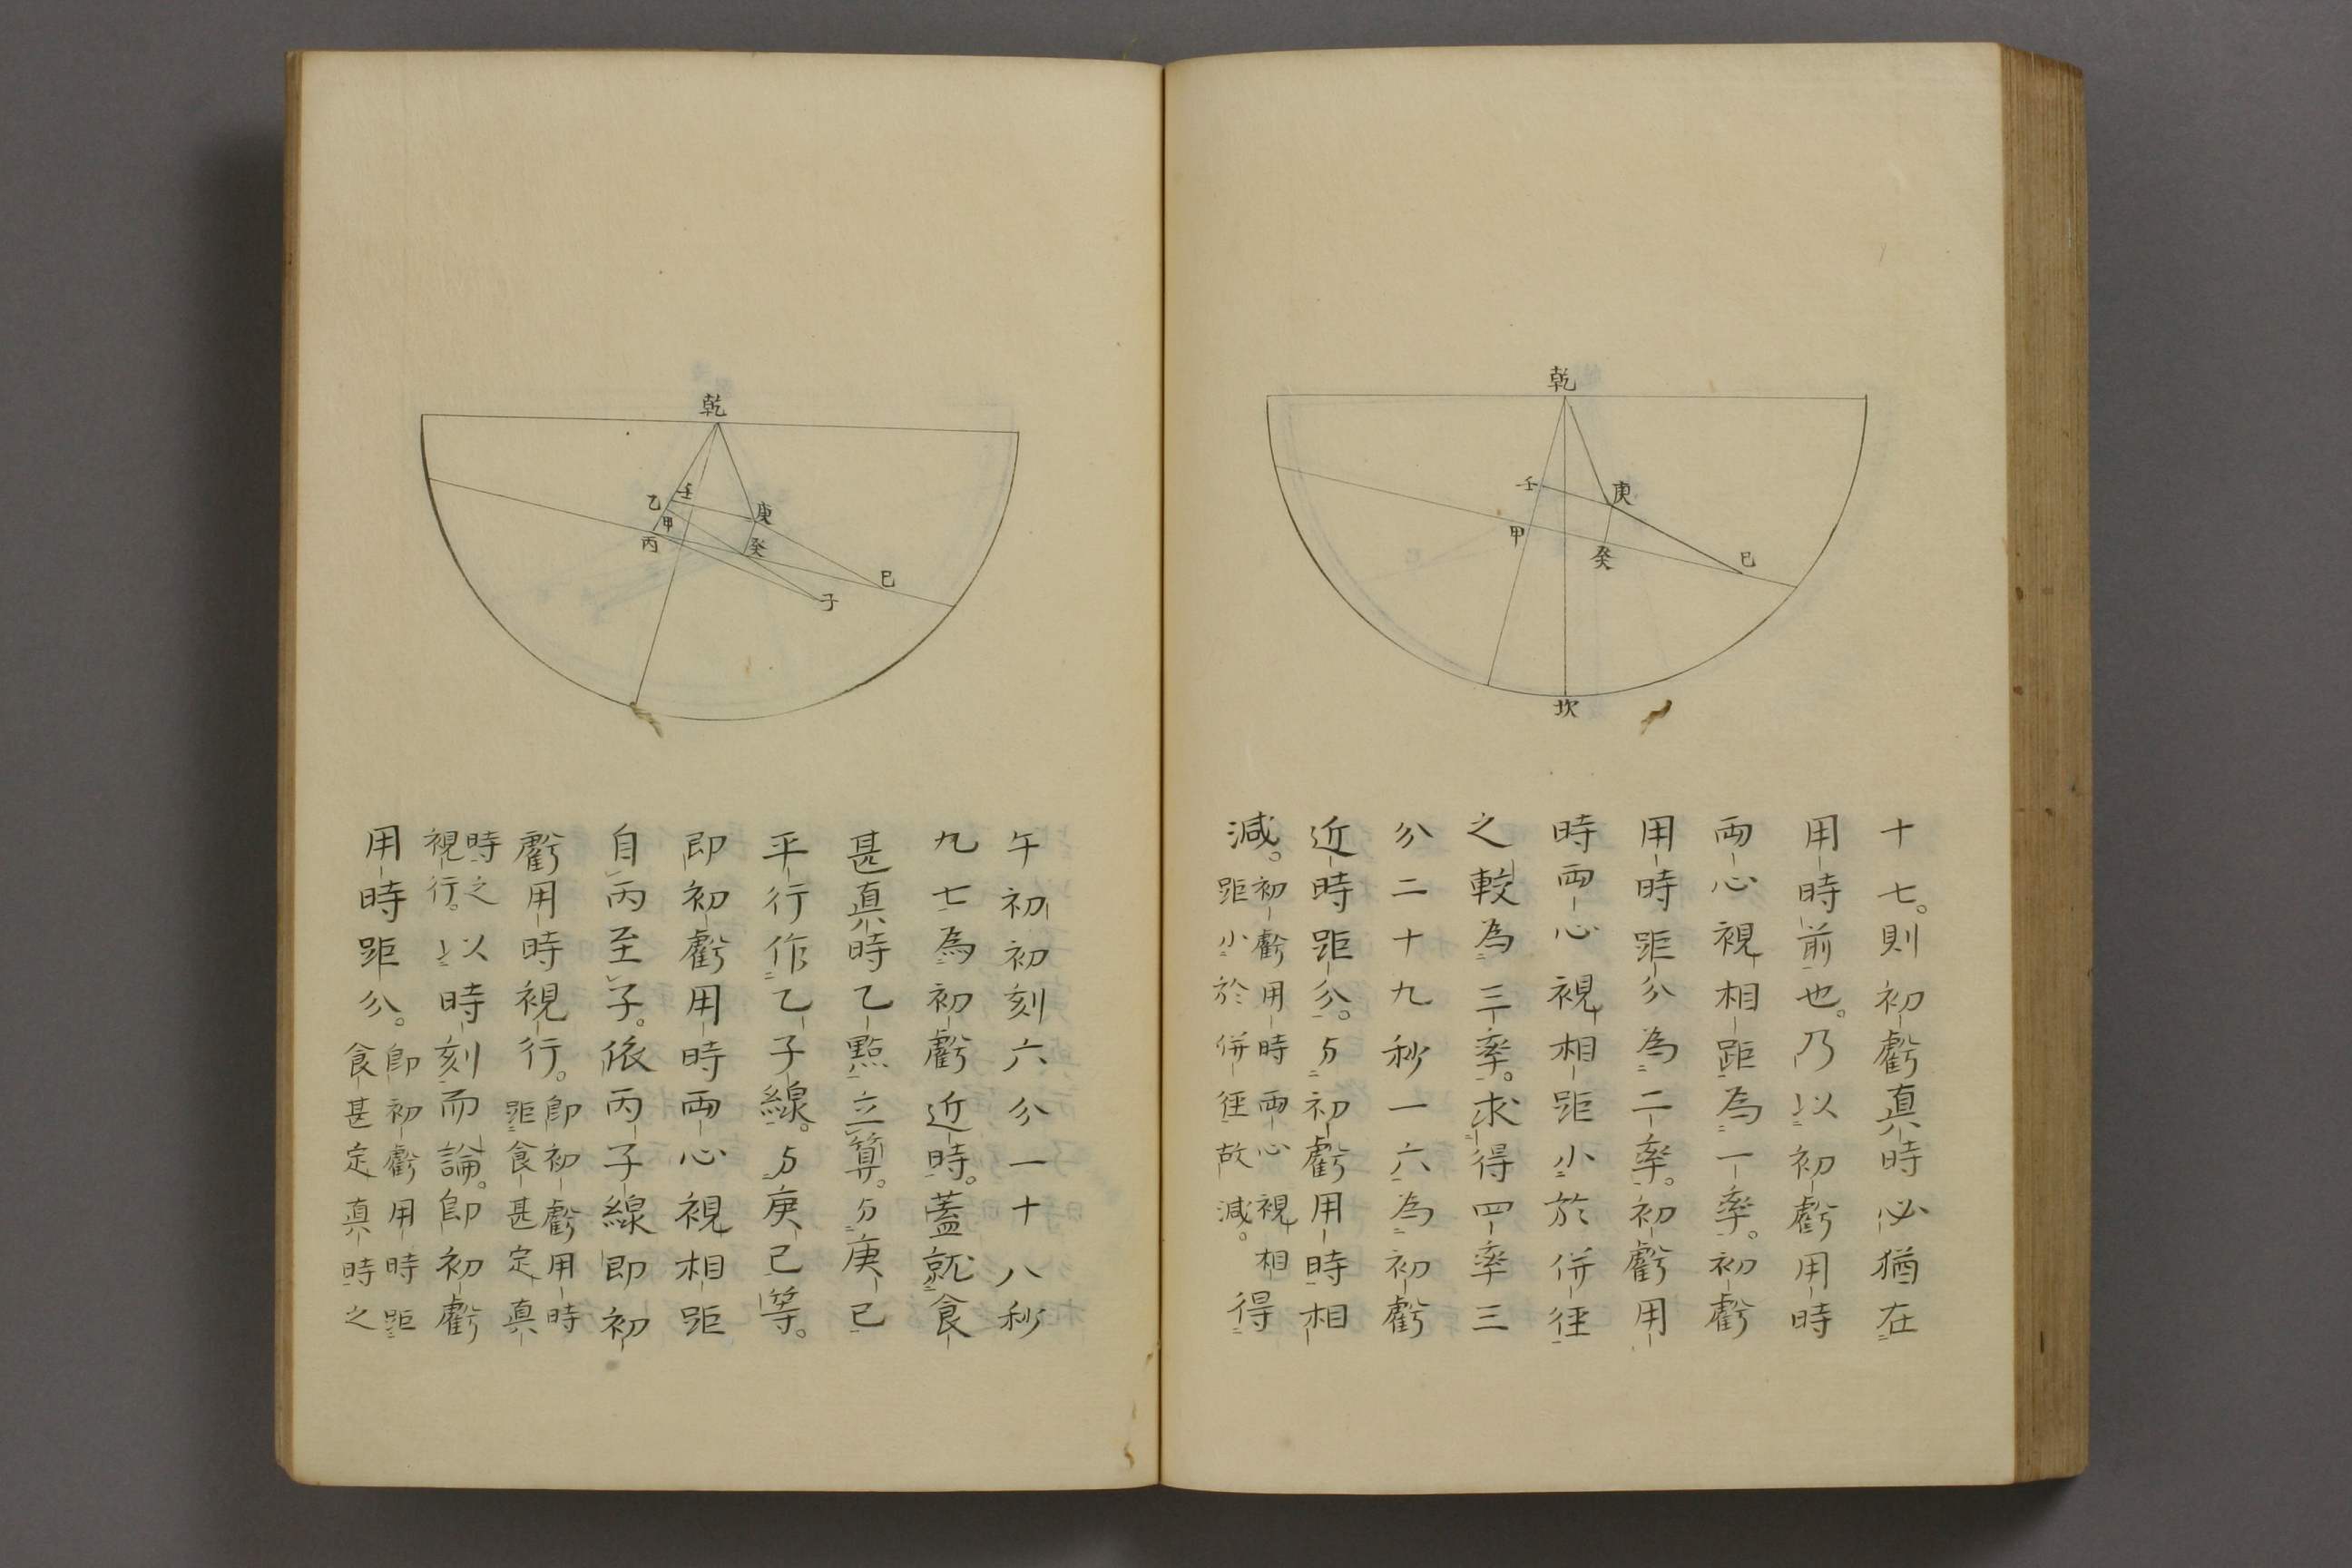 乾
壬
庚
甲
癸
巳
坎
十七。則初虧真時必猶在
用時前也。乃以初虧用時
両心視相距為一率。初虧
用時距分為二率。初虧用
時両心視相距小於併徑
之較為三率。求得四率三
分二十九秒一六為初虧
近時距分。与初虧用時相
減。
初虧用時両心視相
距小於併徑故減。
得
乾
壬
乙
甲
丙
庚
癸
巳
子
午初初刻六分一十八秒
九七為初虧近時。蓋就食
甚真時乙點立算。与庚巳
平行作乙子線。与庚己等。
即初虧用時両心視相距
自丙至子。依丙子線即初
虧用時視行。
即初虧用時
距食甚定真
時之
視行。
以時刻而論。即初虧
用時距分。
即初虧用時距
食甚定真時之